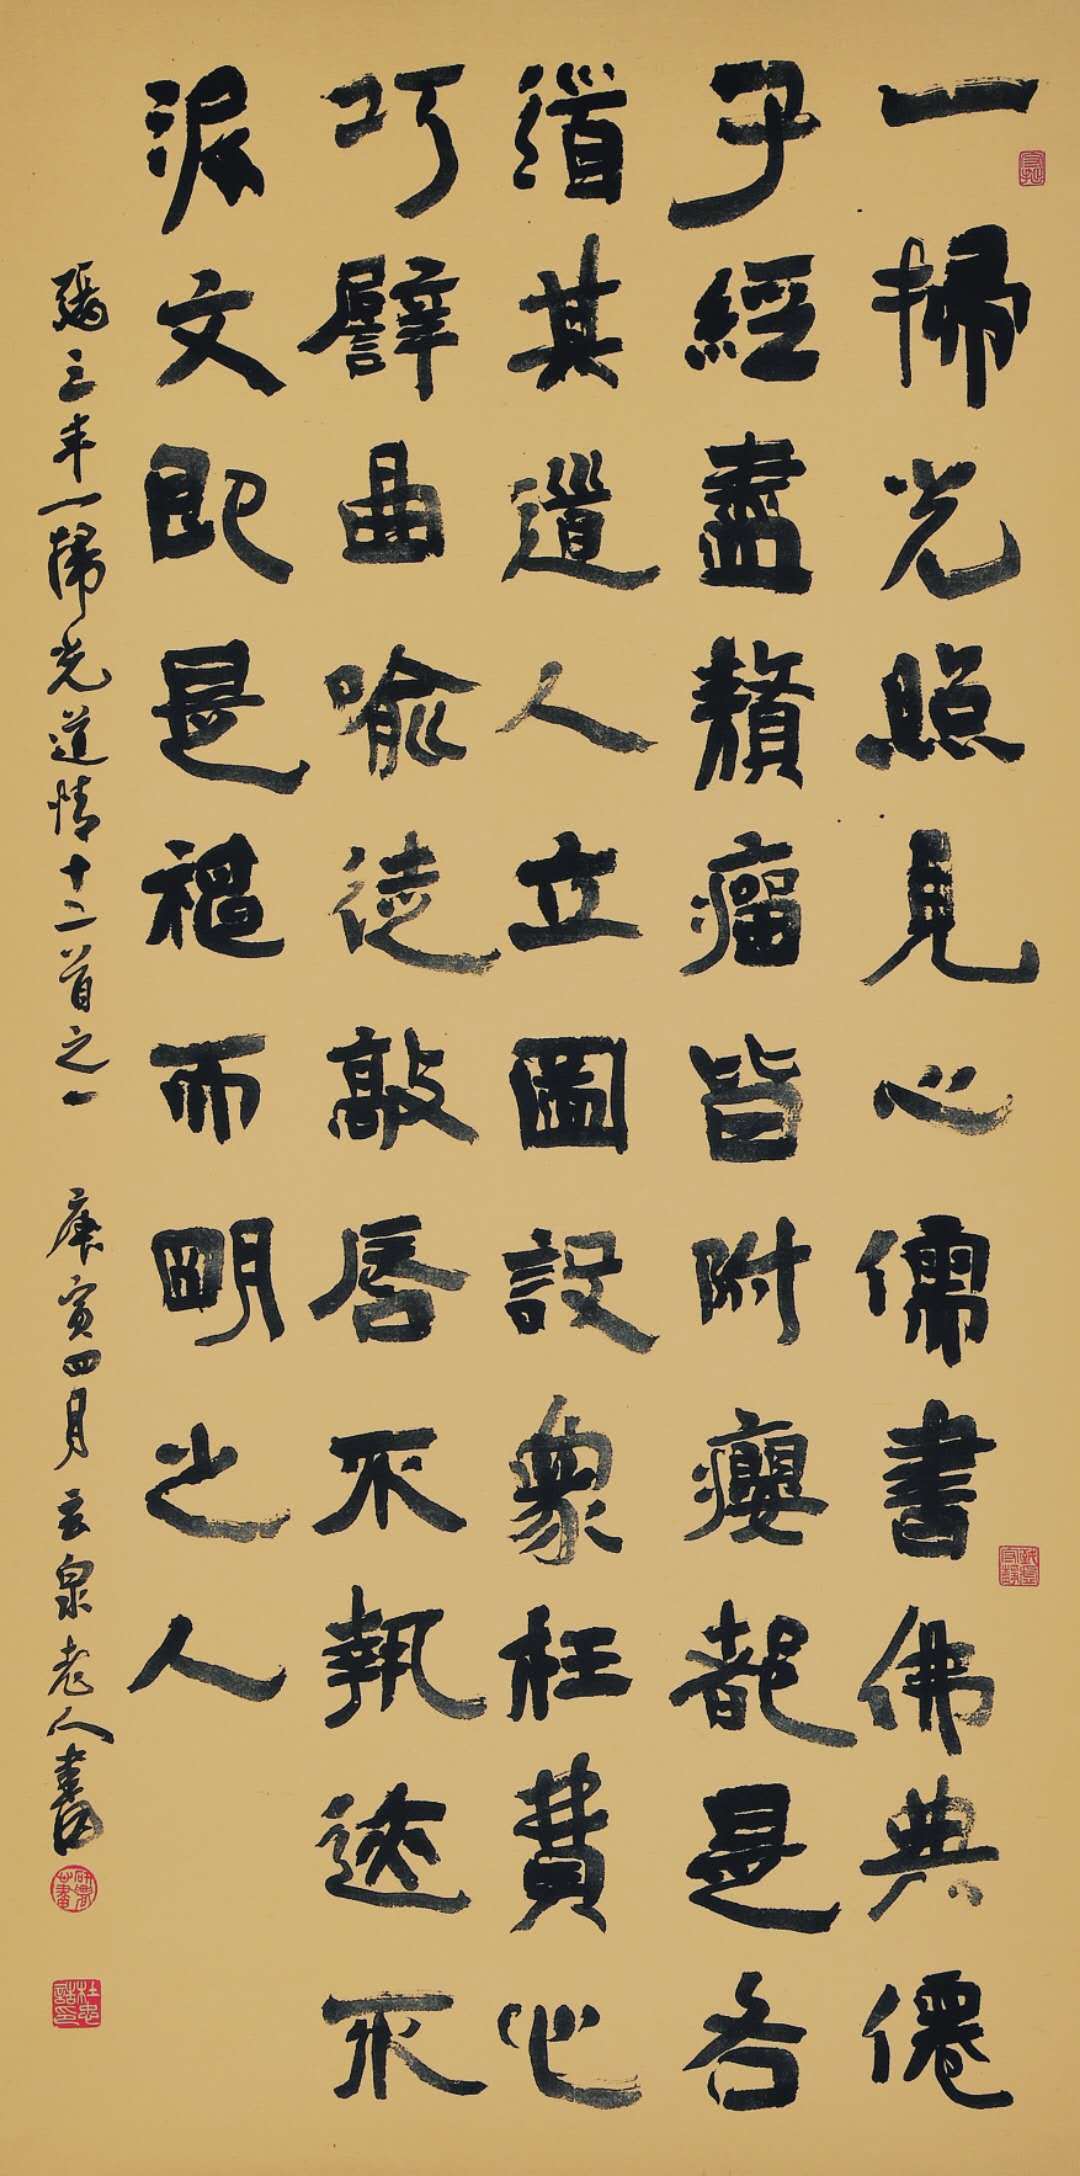 一掃光照見心儒書佛典僊
子經盡贅瘤皆附癭都是各
道其道人立圖設象枉費心
巧譬曲喻徒敲唇不執迷不
泥文即是神而明之人
張三丰一掃光道情十二首之一 庚寅四月 云泉老人書
杜忠誥印